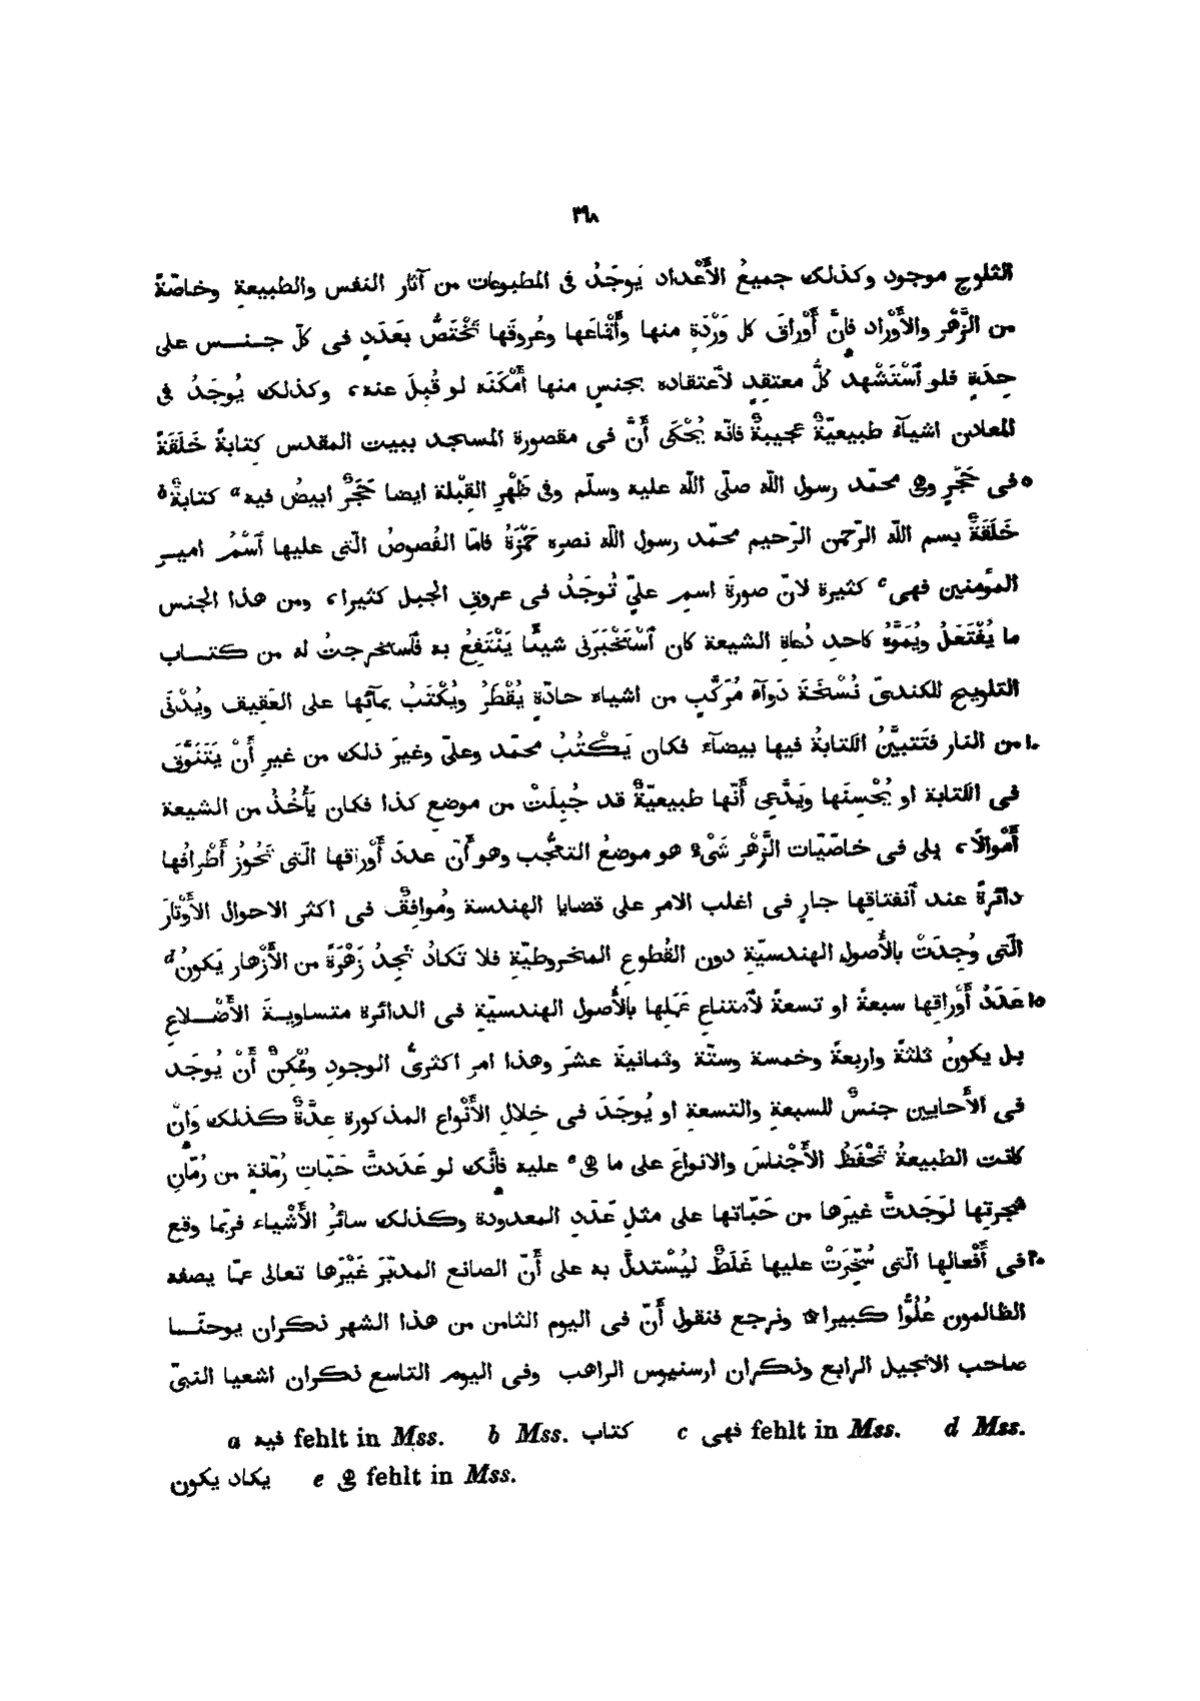 ٢٩٨
الثلوج موجود وكذلك جميعُ الأَعْداد يَوجَدُ فى المطبوعات من آثار النفس والطبيعةِ وخاصّةً
من الزَّهْر والأَوْراد فانَّ أَوْراقَ كل وَرْدَةٍ منها وأَقْماعَها وعُروقَها تَخْتَصُّ بعَدَدٍ فى كلّ جنس على
حِدَةٍ فلو ٱسْتَشْهد كلُّ معتقِدٍ لاَعتقاده بجنسٍ منها أَمْكَنَه لو قُبِلَ عنه، وكذلك يُوجَدُ فى
المعادن اشيآءُ طبيعيّةٌ عجيبةٌ فانّه يُحْكَى أَنَّ فى مقصورة المسجد ببيت المقدس كِتابةً خَلَقَةً
٥ فى حَجَرٍ وهى محمّد رسول اللّه صلّى اللّه عليه وسلّم وفى ظَهْرِ القِبْلة ايضا حَجَرٌ ابيضُ فيه a كتابةٌ b
خَلَقَةٌ بسم اللّه الرّحمن الرّحيم محمّد رسول اللّه نصره حَمْزَةُ فامّا الفُصوصُ الّتى عليها ٱسْمُ امير
المؤمنين فهى c كثيرة لانّ صورةَ اسمِ علىٍّ تُوجَدُ فى عروق الجبل كثيرا، ومن هذا الجنس
ما يُفْتَعَلُ ويُمَوَّهُ كاحدِ دُعاةِ الشيعة كان ٱسْتَخْبَرَنى شيئًا يَنْتَفِعُ به فٱستخرجتُ له من كتاب
التلويح للكندىّ نُسْخَةَ دَوآءٍ مُرَكَّبٍ من اشياء حادّةٍ يُقْطَرُ ويُكْتَبُ بمآئها على العَقِيف ويُدْنَى
١٠ من النار فتَتبيَّنُ الكتابةُ فيها بيضآء فكان يَكْتُبُ محمّد وعلىّ وغيرَ ذلك من غيرِ أَنْ يَتَنَوَّقَ
فى الكتابة او يُحْسِنَها ويَدَّعِى أَنّها طبيعيّةٌ قد جُبِلَتْ من موضعِ كذا فكان يَأْخُذُ من الشيعة
أَمْوالًا، بلى فى خاصّيّات الزَّهْر شَىْءٌ هو موضعُ التعجُّب وهو أَنّ عددَ أَوْراقها الّتى تَحُوزُ أَطْرافُها
دائرةً عند ٱنفتاقِها جارٍ فى اغلب الامر على قضايا الهندسة ومُوافِقٌ فى اكثر الاحوال الأَوْتارَ
الّتى وُجِدَتْ بالأُصول الهندسيّةِ دون القُطوعِ المخروطيّةِ فلا تَكادُ تجِدُ زَهْرَةً من الأَزْهار يَكونُ d
١٥ عَدَدُ أَوْراقها سبعةً او تسعةً لٱمتناعِ عَمَلِها بالأُصول الهندسيّةِ فى الدائرة متساويةَ الأَضْلاعِ
بل يكونُ ثلثةً واربعةً وخمسة وستّة وثمانيةَ عشرَ وهذا امر اكثرىُّ الوجودِ ومُمْكِنٌ أَنْ يُوجَد
فى الأَحايين جنسٌ للسبعة والتسعةِ او يُوجَدَ فى خِلالِ الأَنْواع المذكورة عِدَّةٌ كذلك وَانْ
كانت الطبيعةُ تَحْفَظُ الأَجْناسَ والانواعَ على ما هى e عليه فانَّك لو عَدَدتَّ حَبّاتِ رُمّانةٍ من رُمّانِ
شجرتِها لوَجَدتَّ غيرَها من حَبّاتها على مثلِ عَدَدِ المعدودة وكذلك سائرُ الأَشْياء فربّما وقع
٢٠ فى أَفْعالها الّتى سُخِّرَتْ عليها غَلَطٌ ليُسْتدلَّ به على أَنّ الصانع المدبّرَ غَيْرُها تعالى عمّا يصفه
الظالمون عُلُوًّا كبيرا ۞ ونرجع فنقول أَنّ فى اليوم الثامن من هذا الشهر ذكران يوحنّا
صاحب الانجيل الرابع وذكران ارسنيوس الراهب وفى اليوم التاسع ذكران اشعيا النبىّ
a فيه fehlt in Mss. b Mss. كتاب c فهى fehlt in Mss. d Mss.
يكاد يكون e هى fehlt in Mss.